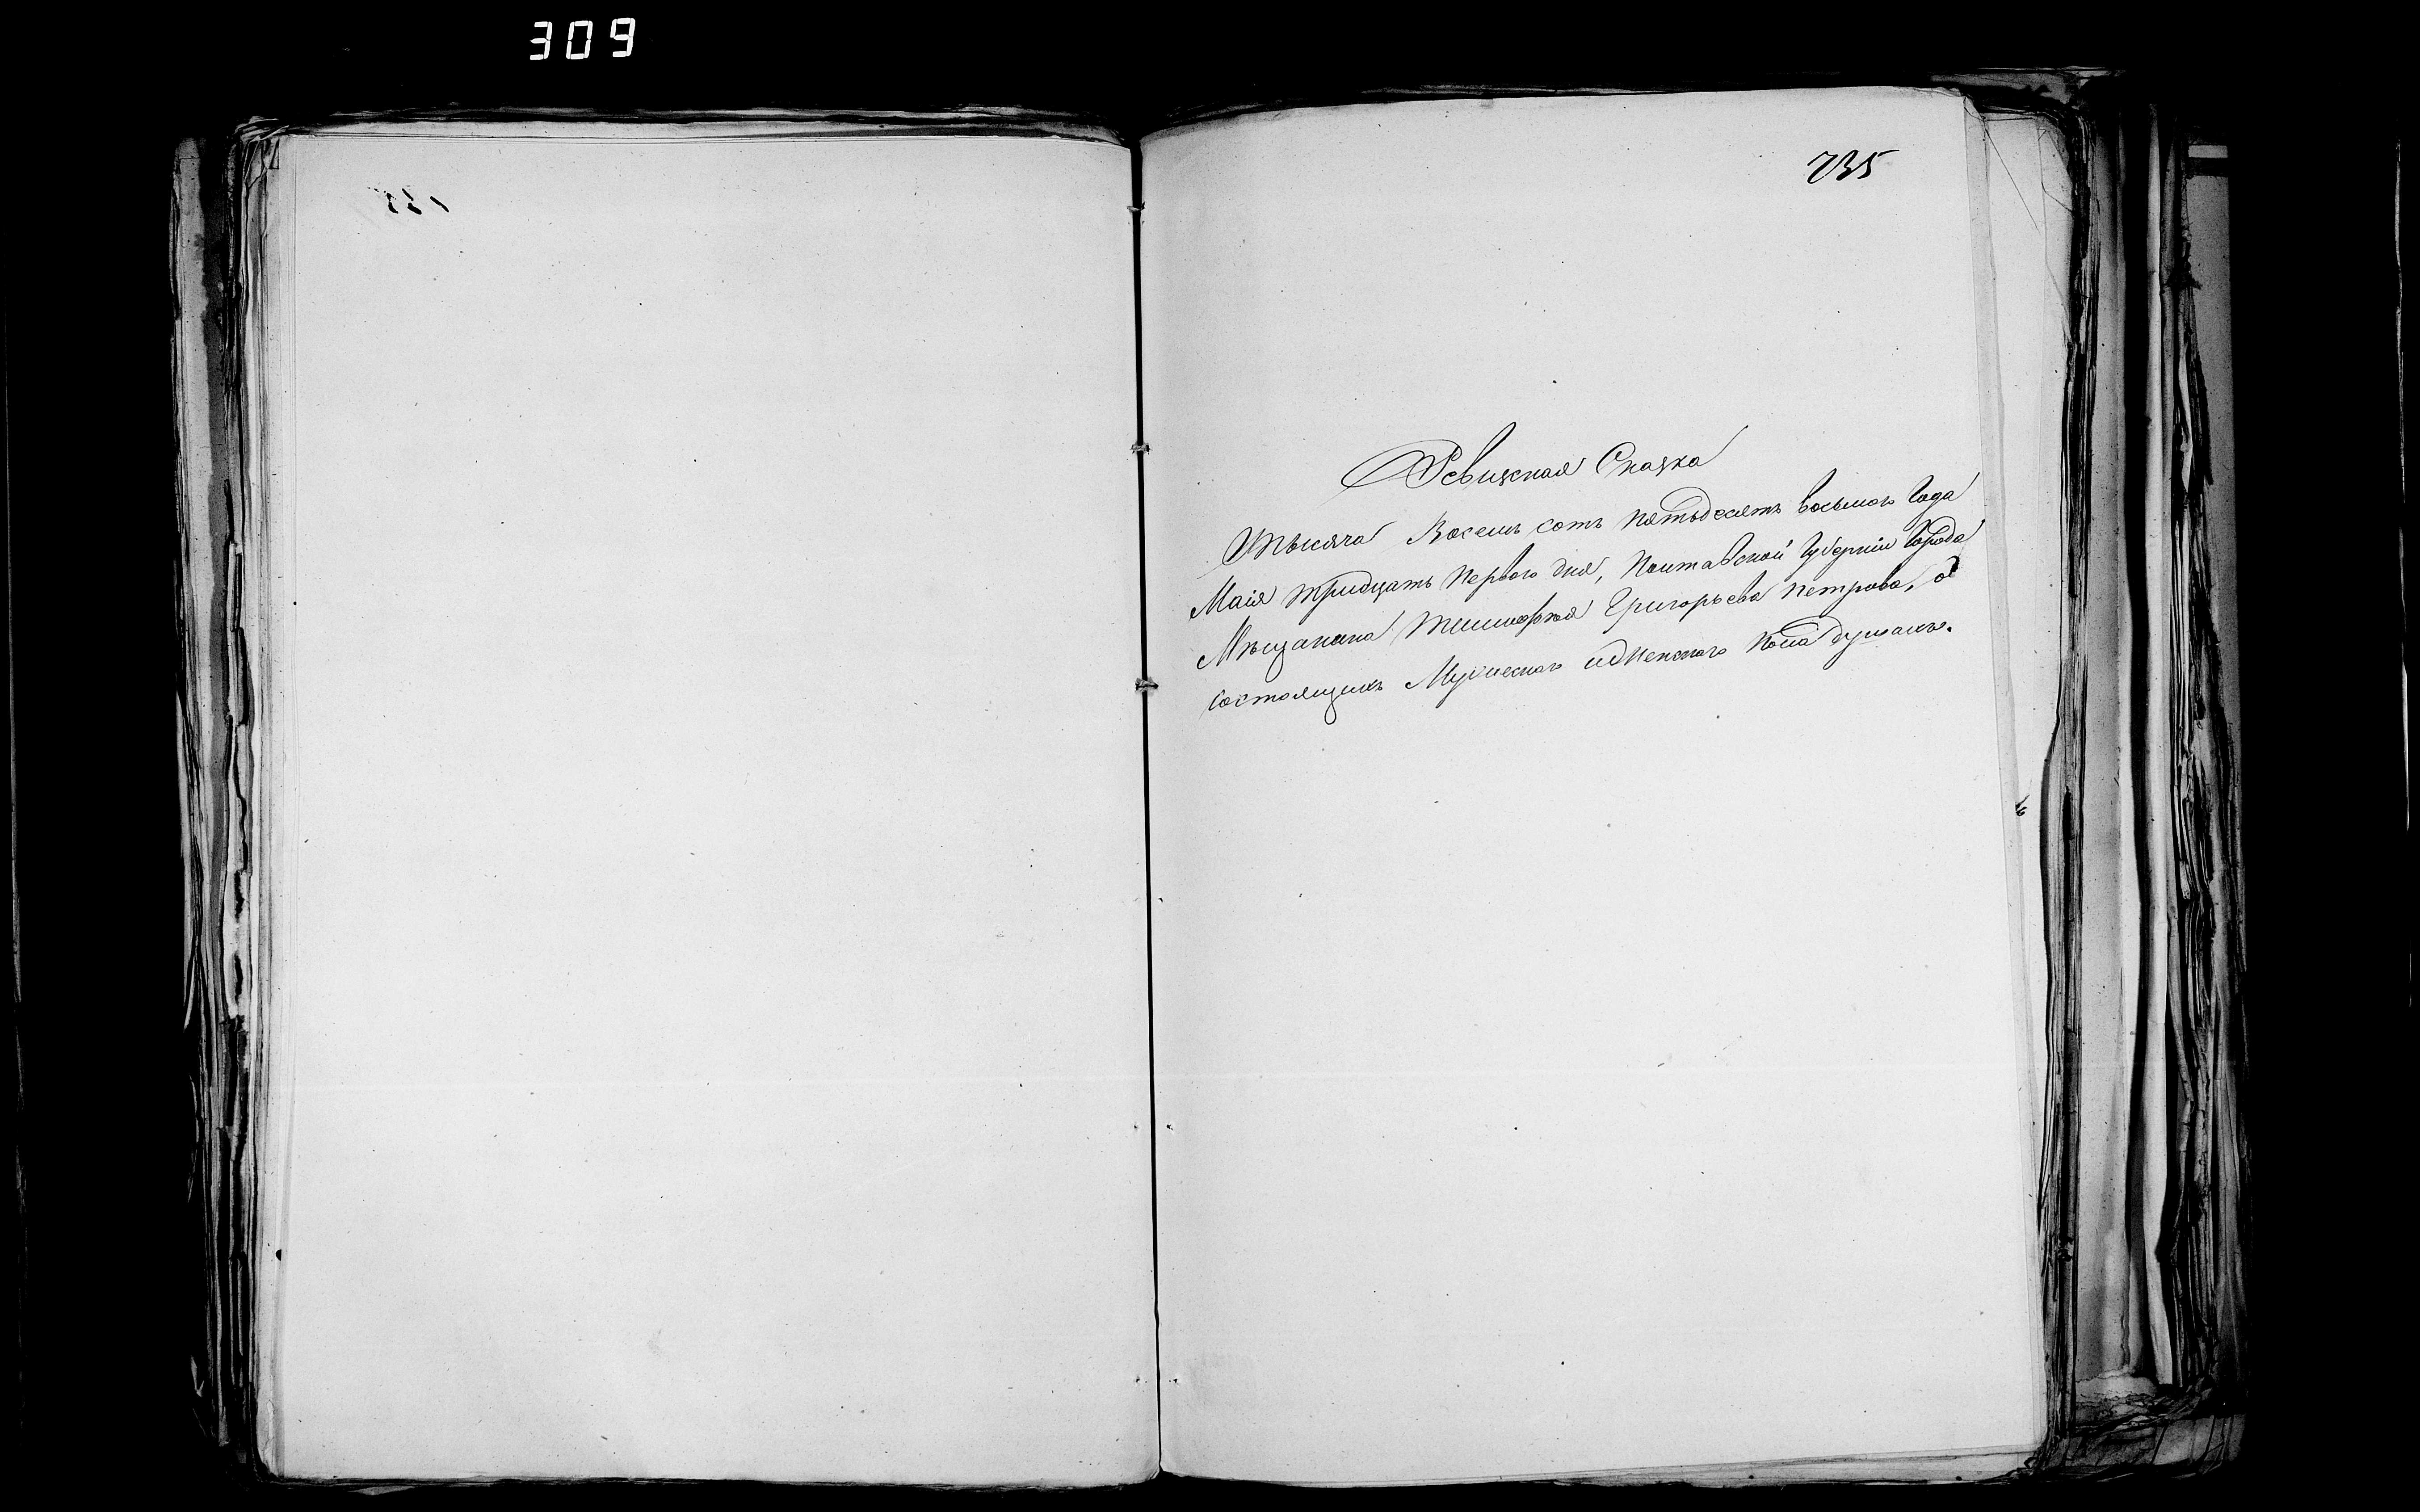 309
735
Ревизская Сказка
Тысяча Восемь сотъ пятьдесятъ восьмого Года
Маія тридцать перваго дня, Полтавской Губерніи Города
Мѣщанина Тимофея Григорьева Петрова, о
состоящихъ Мужескаго иженскаго пола душахъ.